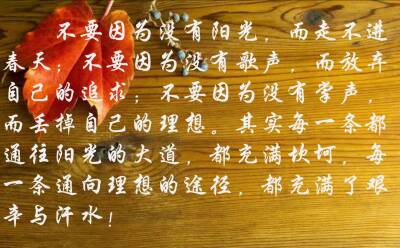 不要因为没有阳光，而走不进
春天；不要因为没有歌声，而放弃
自己的追求；不要因为没有掌声，
而丢掉自己的理想。其实每一条都
通往阳光的大道，都充满坎坷，每
一条通向理想的途径，都充满了艰
辛与汗水！